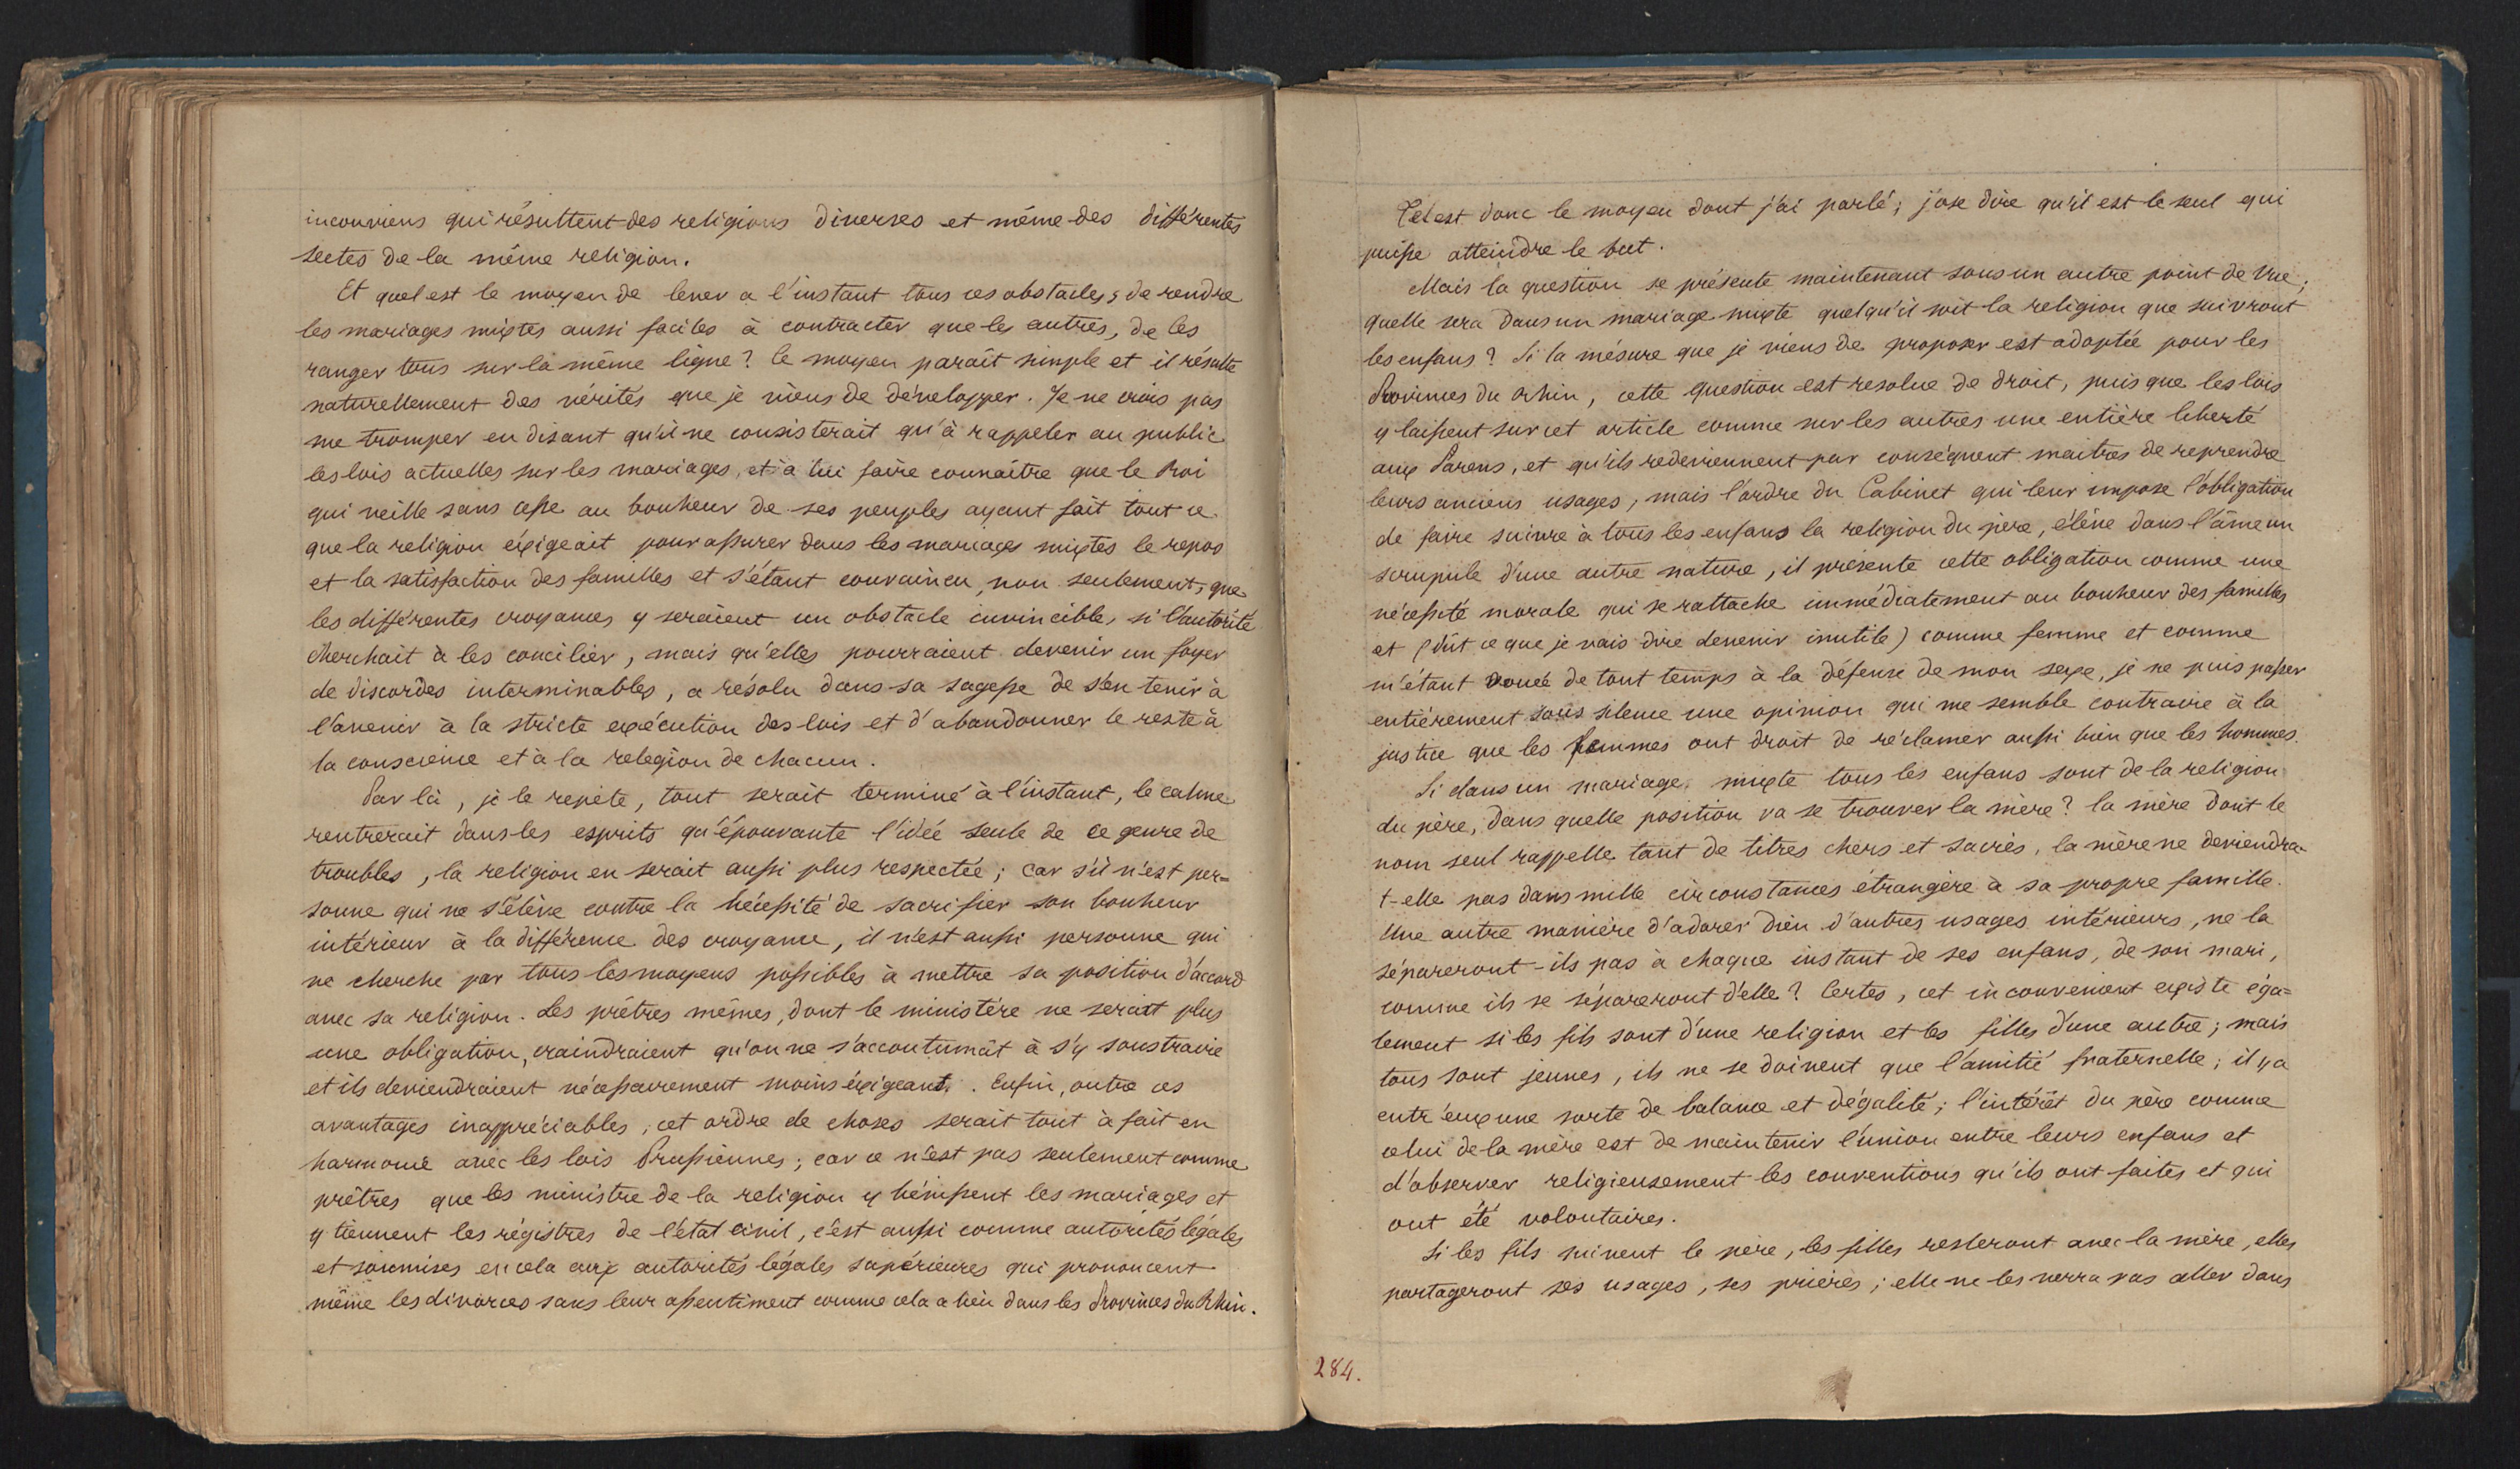 inconviens qui résultent des religions diverses et même des différentes
sectes de la même religion.
Et quel est le moyen de lever a l'instant tous ces obstacles, de rendre
les mariages mixtes aussi faciles à contracter que les autres, de les
ranger tous sur la même ligne? le moyen paraît simple et il résulte
naturellement des vérités que je viens de développer. Je ne crois pas
me tromper en disant qu'il ne consisterait qu'à rappeler au public
les lois actuelles sur les mariages, et à lui faire connaître que le Roi
qui veille sans cesse au bonheur de ses peuples ayant fait tout ce
que la religion éxigeait pour assurer dans les mariages mixtes le repos
et la satisfaction des familles et s'étant convaincu, non seulement, que
les différentes croyances y seraient un obstacle invincible, si l'autorité
cherchait à les concilier, mais qu'elles pourraient devenir un foyer
de discordes interminables, a résolu dans sa sagesse de s'en tenir à
l'avenir à la stricte exécution des lois et d'abandonner le reste à
la conscience et à la relegion de chacun.
Par là, je le repète, tout serait terminé à l'instant, le calme
rentrerait dans les esprits qu'épouvante l'idée seule de ce genre de
troubles, la religion en serait aussi plus respectée; car s'il n'est per=
sonne qui ne s'élève contre la nécessité de sacrifier son bonheur
intérieur à la différence des croyance, il n'est aussi personne qui
ne cherche par tous les moyens possibles à mettre sa position d'accord
avec sa religion. Les prêtres mêmes, dont le ministère ne serait plus
une obligation, craindraient qu'on ne s'accoutumât à s'y soustraire
et ils deviendraient nécessairement moins éxigeant. Enfin, outre ces
avantages inappréciables, cet ordre de choses serait tout à fait en
harmonie avec les lois Prussiennes; car ce n'est pas seulement comme
prêtres que les ministre de la religion y bénissent les mariages et
y tiennent les régistres de l'état civil, c'est aussi comme autorités légales
et soumises en cela aux autorités légales supérieures qui prononcent
même les divorces sans leur assentiment comme cela a lieu dans les Provinces du Rhin.
Tel est donc le moyen dont j'ai parlé; j'ose dire qu'il est le seul qui
puisse atteindre le but.
Mais la question se présente maintenant sous un autre point de vue;
quelle sera dans un mariage mixte quelqu'il soit la religion que suivront
les enfans? Si la mésure que je viens de proposer est adoptée pour les
Provinces du Rhin, cette question est resolue de droit, puis que les lois
y laissent sur cet article comme sur les autres une entière liberté
aux Parens, et qu'ils redeviennent par conséquent maitres de reprendre
leurs anciens usages; mais l'ordre du Cabinet qui leur impose l'obligation
de faire suivre à tous les enfans la religion du père, élève dans l'âme un
scrupule d'une autre nature, il présente cette obligation comme une
nécessité morale qui se rattache immédiatement au bonheur des familles
et (dût ce que je vais dire devenir inutile) comme femme et comme
m'étant vouée de tout temps à la défense de mon sexe, je ne puis passer
entièrement sous silence une opinion qui me semble contraire à la
justice que les femmes ont droit de réclamer aussi bien que les hommes.
Si dans un mariage mixte tous les enfans sont de la religion
du père, dans quelle position va se trouver la mère? la mère dont le
nom seul rappelle tant de titres chers et sacrés, la mère ne deviendra-
t-elle pas dans mille circonstances étrangère à sa propre famille.
Une autre manière d'adorer Dieu d'autres usages intérieurs, ne la
sépareront-ils pas à chaque instant de ses enfans, de son mari,
comme ils se sépareront d'elle? Certes, cet inconvenient existe éga=
lement si les fils sont d'une religion et les filles d'une autre; mais
tous sont jeunes, ils ne se doivent que l'amitié fraternelle; il y a
entr'eux une sorte de balance et d'égalité; l'intérêt du père comme
celui de la mère est de maintenir l'union entre leurs enfans et
d'observer religieusement les conventions qu'ils ont faites et qui
ont été volontaires.
Si les fils suivent le père, les filles resteront avec la mère, elles
partageront ses usages, ses prières; elle ne les verra pas aller dans
284.